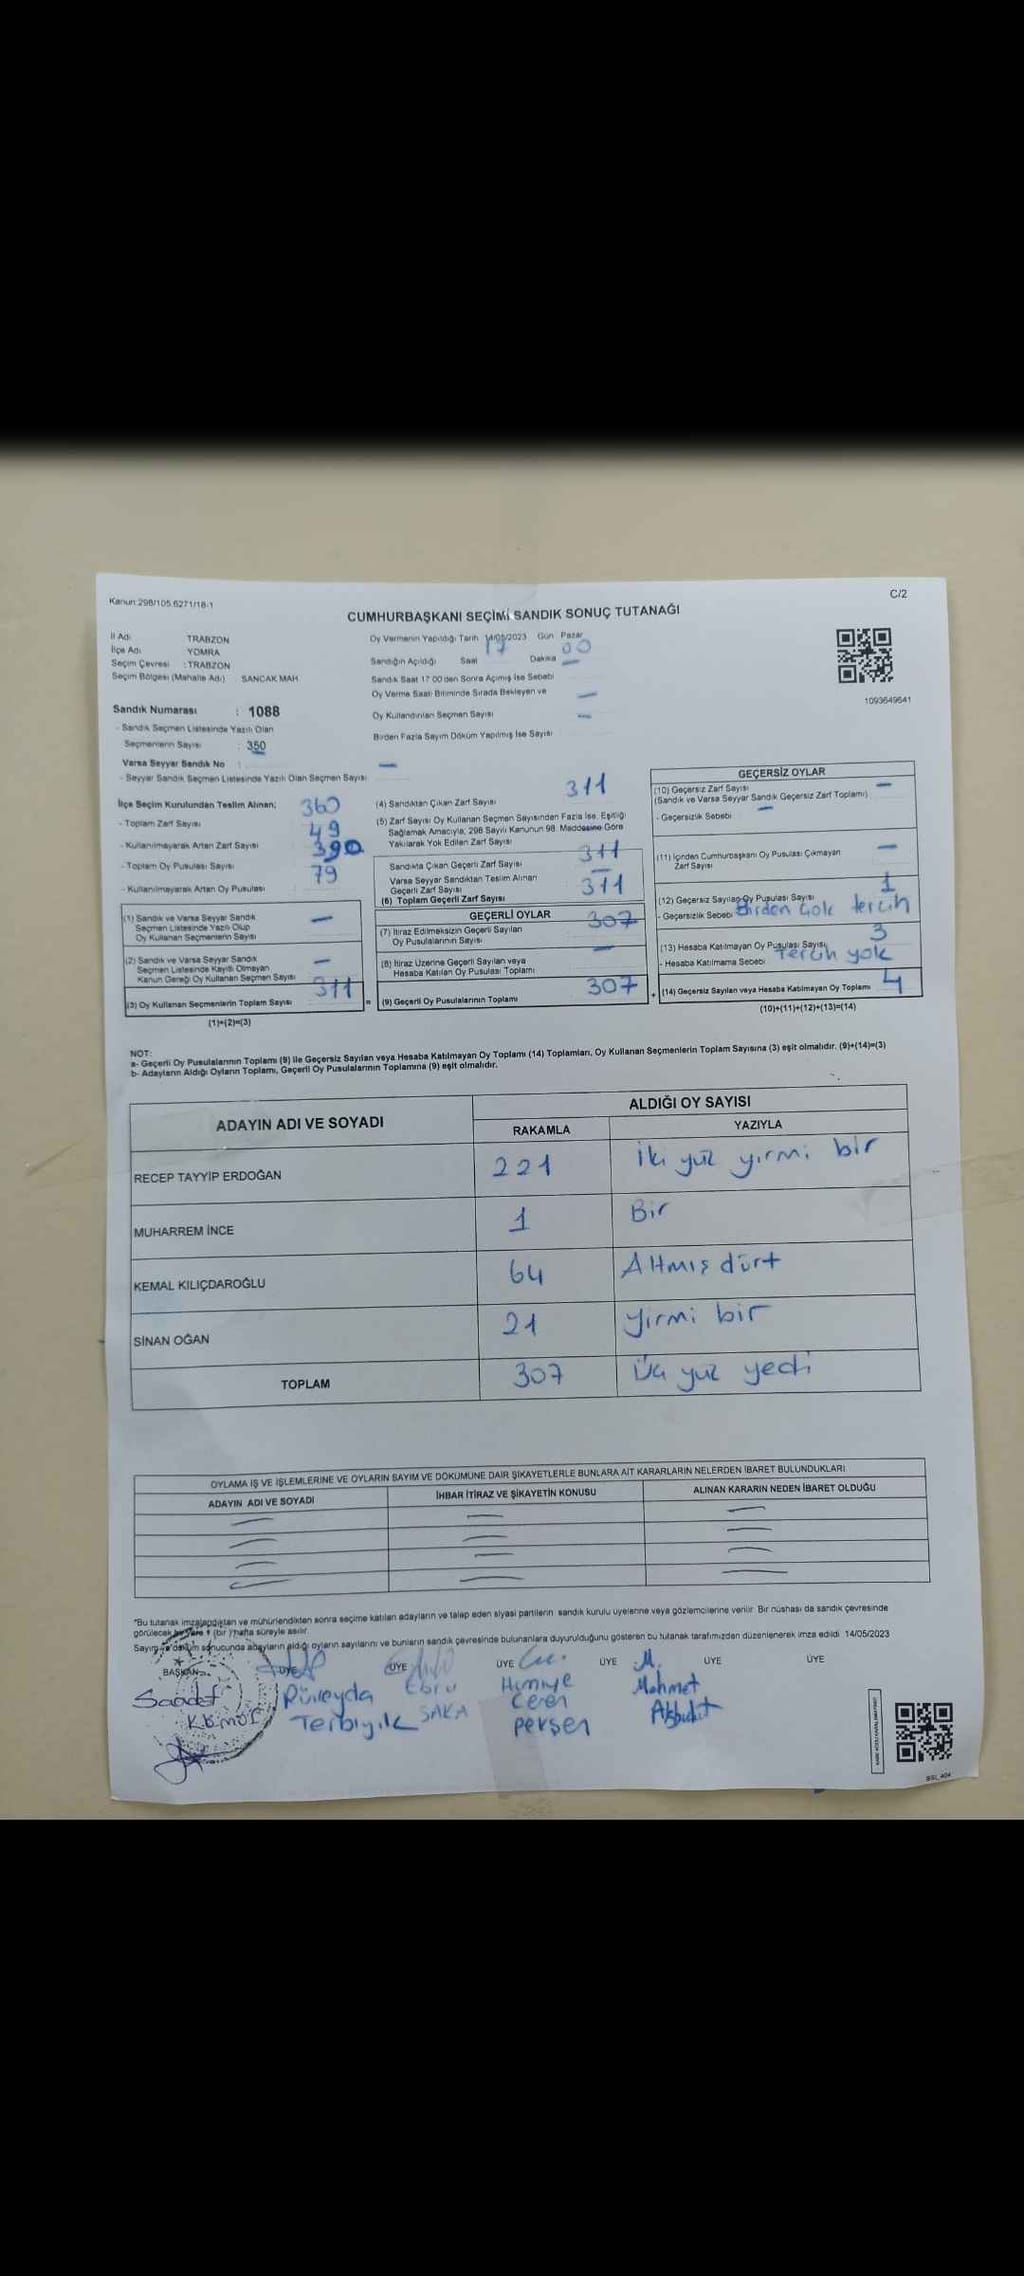 Kanun:298/105.6271/18-1
C/2
CUMHURBAŞKANI SEÇİMİ SANDIK SONUÇ TUTANAĞI
İl Adı TRABZON
İlçe Adı YOMRA
Seçim Çevresi : TRABZON
Seçim Bölgesi (Mahalle Adı) SANCAK MAH.
Sandık Numarası : 1088
- Sandık Seçmen Listesinde Yazılı Olan
Seçmenlerin Sayısı : 350
Varsa Seyyar Sandık No : —
- Seyyar Sandık Seçmen Listesinde Yazılı Olan Seçmen Sayısı
Oy Vermenin Yapıldığı Tarih 14/05/2023 Gün Pazar
Sandığın Açıldığı Saat 17 Dakika 00
Sandık Saat 17.00'den Sonra Açılmış İse Sebebi —
Oy Verme Saati Bitiminde Sırada Bekleyen ve
Oy Kullandırılan Seçmen Sayısı —
Birden Fazla Sayım Döküm Yapılmış İse Sayısı —
1093649641
İlçe Seçim Kurulundan Teslim Alınan;
- Toplam Zarf Sayısı 360
- Kullanılmayarak Artan Zarf Sayısı 49
- Toplam Oy Pusulası Sayısı 390
- Kullanılmayarak Artan Oy Pusulası 79
(1) Sandık ve Varsa Seyyar Sandık
Seçmen Listesinde Yazılı Olup
Oy Kullanan Seçmenlerin Sayısı —
(2) Sandık ve Varsa Seyyar Sandık
Seçmen Listesinde Kayıtlı Olmayan
Kanun Gereği Oy Kullanan Seçmen Sayısı —
(3) Oy Kullanan Seçmenlerin Toplam Sayısı 311
(1)+(2)=(3)
(4) Sandıktan Çıkan Zarf Sayısı 311
(5) Zarf Sayısı Oy Kullanan Seçmen Sayısından Fazla İse, Eşitliği
Sağlamak Amacıyla, 298 Sayılı Kanunun 98. Maddesine Göre
Yakılarak Yok Edilen Zarf Sayısı
Sandıkta Çıkan Geçerli Zarf Sayısı 311
Varsa Seyyar Sandıktan Teslim Alınan
Geçerli Zarf Sayısı —
(6) Toplam Geçerli Zarf Sayısı 311
GEÇERLİ OYLAR
(7) İtiraz Edilmeksizin Geçerli Sayılan
Oy Pusulalarının Sayısı 307
(8) İtiraz Üzerine Geçerli Sayılan veya
Hesaba Katılan Oy Pusulası Toplamı —
= (9) Geçerli Oy Pusulalarının Toplamı 307
GEÇERSİZ OYLAR
(10) Geçersiz Zarf Sayısı
(Sandık ve Varsa Seyyar Sandık Geçersiz Zarf Toplamı) —
- Geçersizlik Sebebi —
(11) İçinden Cumhurbaşkanı Oy Pusulası Çıkmayan
Zarf Sayısı —
(12) Geçersiz Sayılan Oy Pusulası Sayısı 1
- Geçersizlik Sebebi Birden Çok tercih
(13) Hesaba Katılmayan Oy Pusulası Sayısı 3
- Hesaba Katılmama Sebebi Tercih yok
+ (14) Geçersiz Sayılan veya Hesaba Katılmayan Oy Toplamı 4
(10)+(11)+(12)+(13)=(14)
NOT:
a- Geçerli Oy Pusulalarının Toplamı (9) ile Geçersiz Sayılan veya Hesaba Katılmayan Oy Toplamı (14) Toplamları, Oy Kullanan Seçmenlerin Toplam Sayısına (3) eşit olmalıdır. (9)+(14)=(3)
b- Adayların Aldığı Oyların Toplamı, Geçerli Oy Pusulalarının Toplamına (9) eşit olmalıdır.
ADAYIN ADI VE SOYADI
ALDIĞI OY SAYISI
RAKAMLA YAZIYLA
RECEP TAYYİP ERDOĞAN 221 İki yüz yirmi bir
MUHARREM İNCE 1 Bir
KEMAL KILIÇDAROĞLU 64 Altmış dört
SİNAN OĞAN 21 yirmi bir
TOPLAM 307 Üç yüz yedi
OYLAMA İŞ VE İŞLEMLERİNE VE OYLARIN SAYIM VE DÖKÜMÜNE DAİR ŞİKAYETLERLE BUNLARA AİT KARARLARIN NELERDEN İBARET BULUNDUKLARI
ADAYIN ADI VE SOYADI İHBAR İTİRAZ VE ŞİKAYETİN KONUSU ALINAN KARARIN NEDEN İBARET OLDUĞU
— — —
— — —
— — —
— — —
*Bu tutanak imzalandıktan ve mühürlendikten sonra seçime katılan adayların ve talep eden siyasi partilerin sandık kurulu üyelerine veya gözlemcilerine verilir. Bir nüshası da sandık çevresinde
görülecek bir yere 1 (bir) hafta süreyle asılır.
Sayım ve döküm sonucunda adayların aldığı oyların sayılarını ve bunların sandık çevresinde bulunanlara duyurulduğunu gösteren bu tutanak tarafımızdan düzenlenerek imza edildi. 14/05/2023
BAŞKAN ÜYE ÜYE ÜYE ÜYE ÜYE ÜYE
Saadet Rüveyda Ebru Mahmet
Kömür Terbıyık SAKA Ceren
PEKŞEN
BSL 404